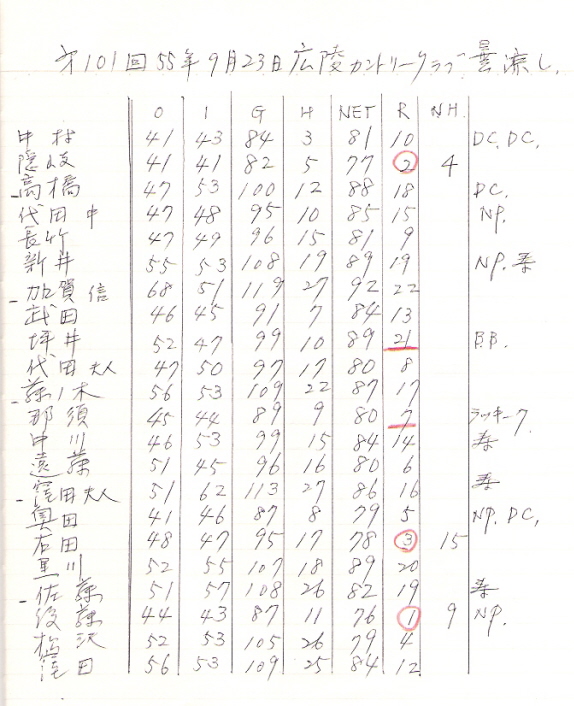 101回55年9月23日広陵カントリークラブ 曇涼し.
O I G H NET R N.H.
中村 41 43 84 3 81 10 DC, DC,
隠岐 41 41 82 5 77 2 4
高橋 47 53 100 12 88 18 DC.
代田中 47 48 95 10 85 15 NP.
長竹 47 49 96 15 81 9
新井 55 53 108 19 89 19 NP.
加賀信 68 51 119 27 92 22
武田 46 45 91 7 84 13
坪井 52 47 99 10 89 21 B.B.
代田夫人 47 50 97 17 80 8
藤ノ木 56 53 109 22 87 17
那須 45 44 89 9 80 7 ラッキー7
中川 46 53 99 15 84 14
遠藤 51 45 96 16 80 6
窪田夫人 51 62 113 27 86 16
奥田 41 46 87 8 79 5 NP. DC,
右田 48 47 95 17 78 3 15
黒川 52 55 107 18 89 20
佐藤 51 57 108 26 82 19
後藤 44 43 87 11 76 1 9 NP.
沢 52 53 105 26 79 4
窪田 56 53 109 25 84 12